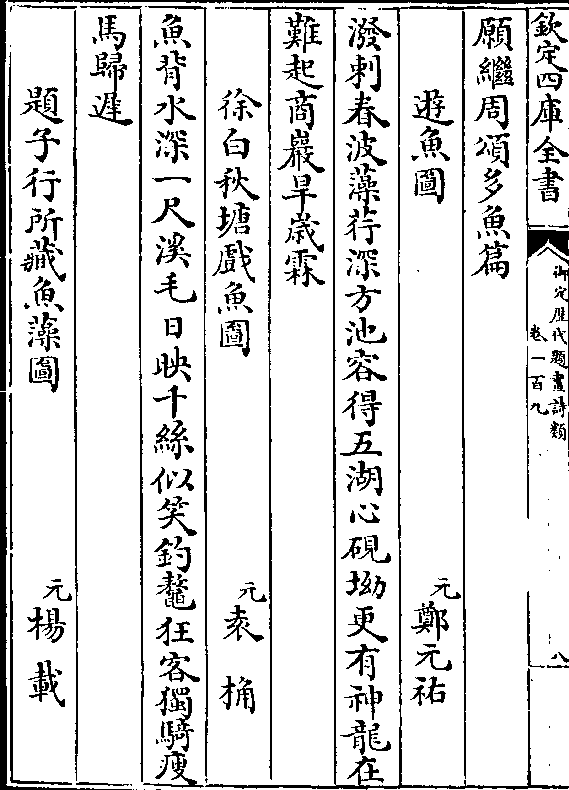 欽定四庫全書
御定歷代題畫詩類
卷一百九
八
願繼周頌多魚篇
遊魚圖
元鄭元祐
潑刺春波藻荇深方池容得五湖心硯坳更有神龍在
難起商巖旱歲霖
徐白秋塘戲魚圖
元袁桷
魚背水深一尺溪毛日映千絲似笑釣鼇狂客獨騎瘦
馬歸遲
題子行所藏魚藻圖
元楊載